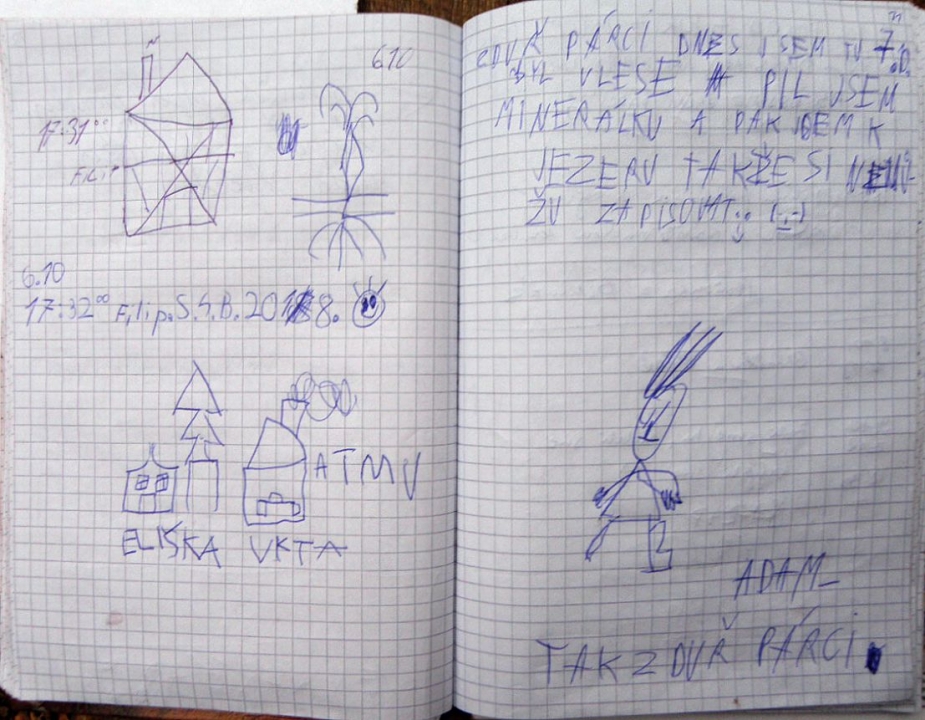 6.10
17:31⁰⁰
FiLiP
6.10
17:32⁰⁰ Filip.S.4.B. 2018.
ATMU
ELIŠKA VKTA
ZDVŘ PÁRCI DNES JSEM TU 7.
BYL VLESE PIL JSEM
MINERÁLKU A PAK JDEM K
JEZERU TAKŽE SI NEMŮ-
ŽU ZAPISOVAT
ADAM
TAK ZDVŘ PÁRCI